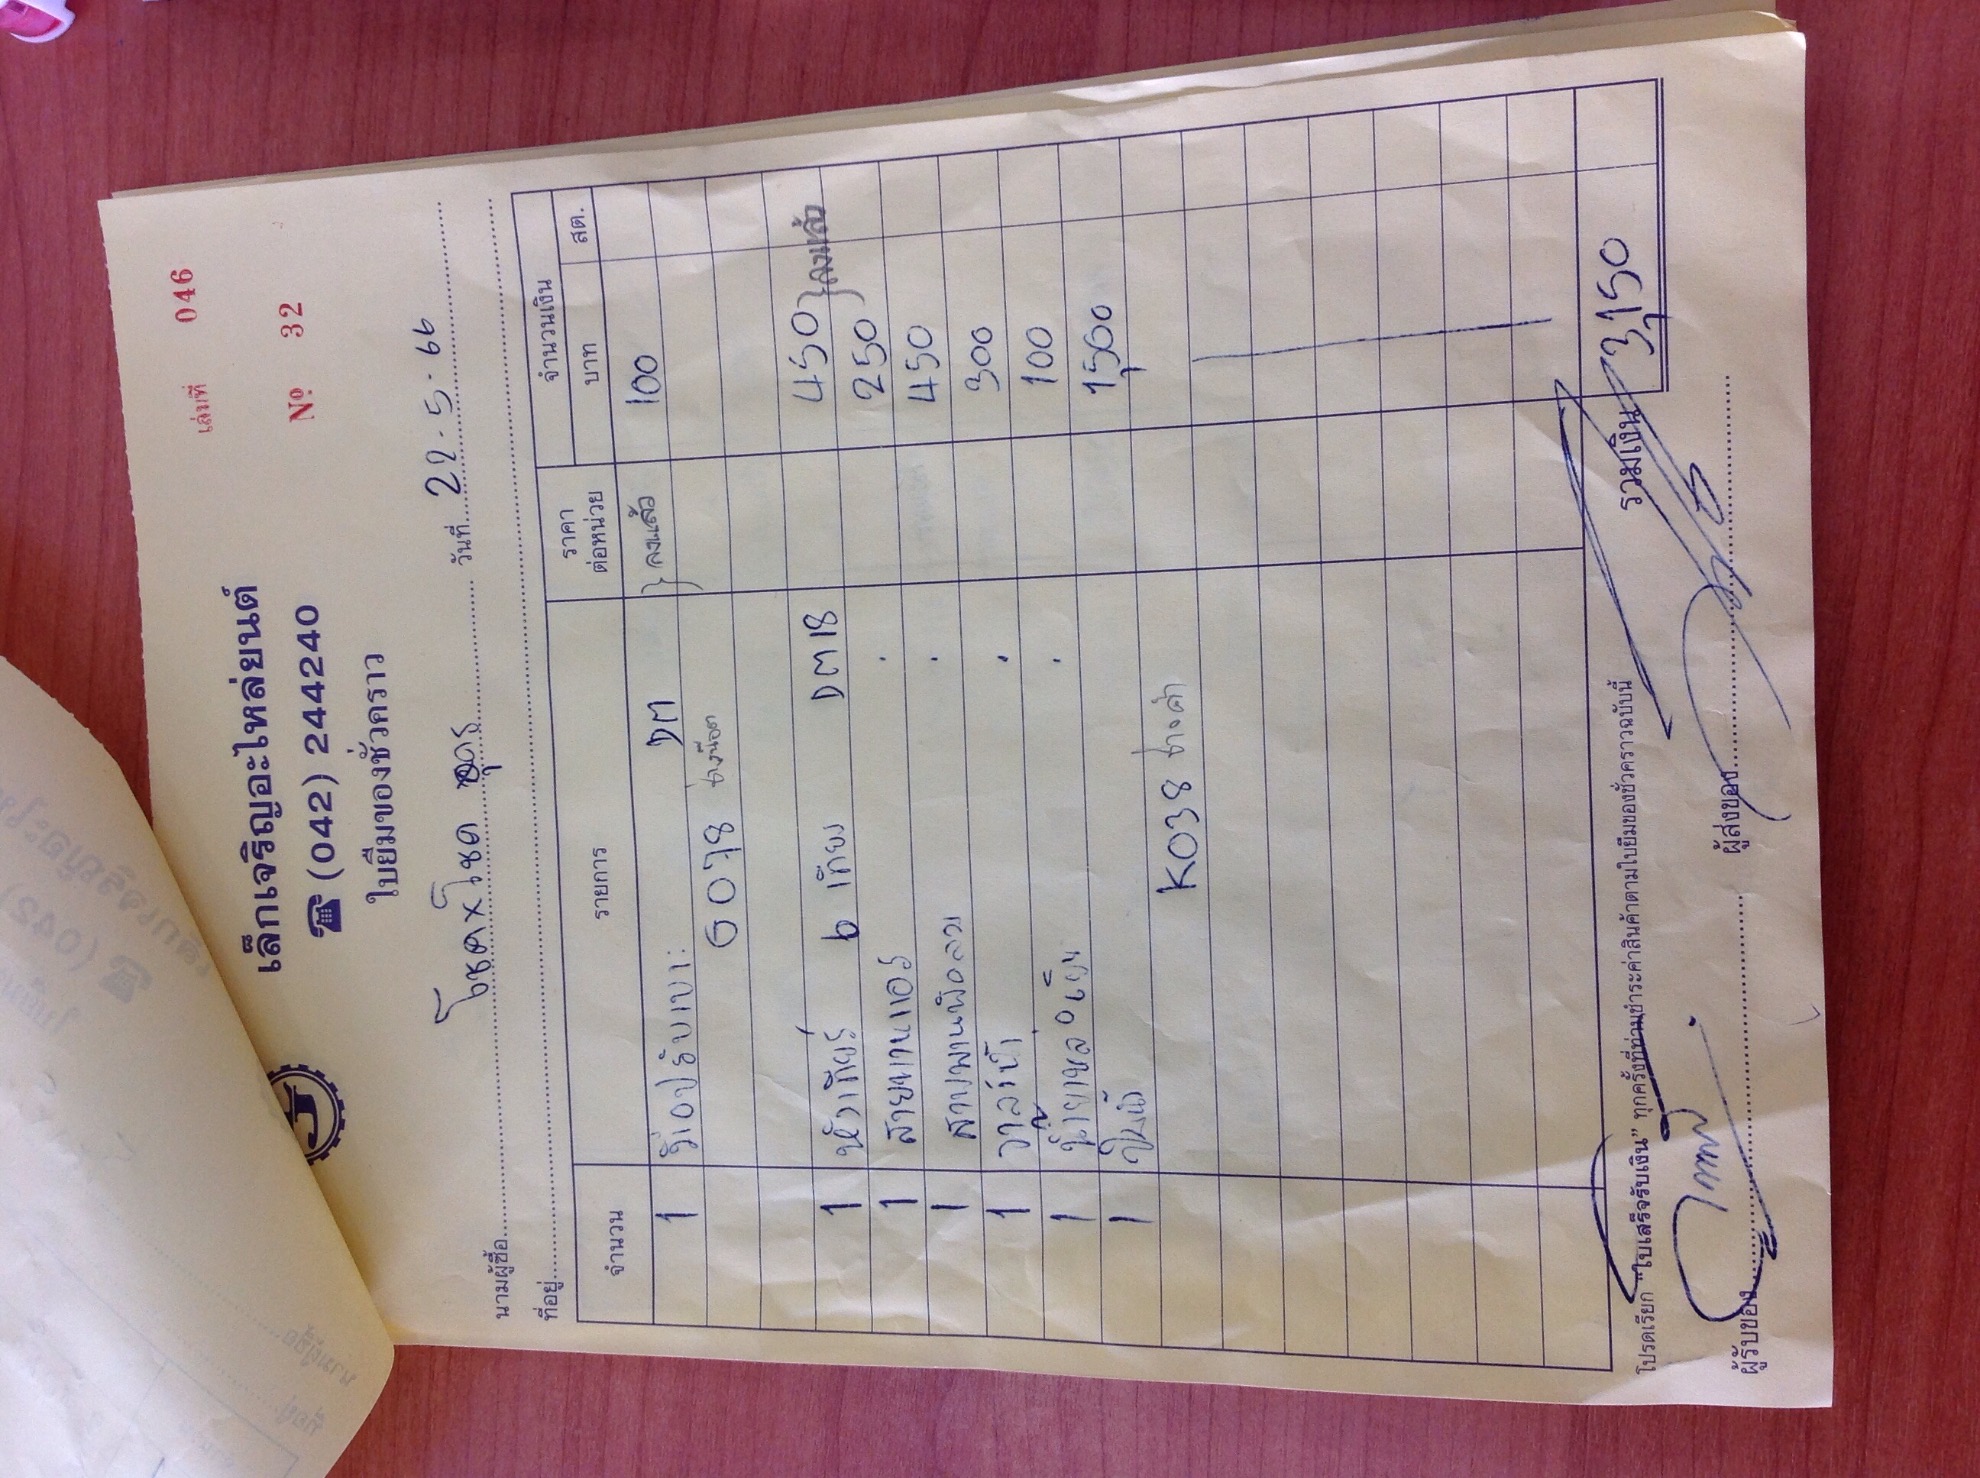 เล่มที่ 046
เล็กเจริญอะไหล่ยนต์
☎ (042) 244240
Nº 32
ใบยืมของชั่วคราว
นามผู้ซื้อ โชคxโชค อุดร วันที่ 22-5-66
ที่อยู่
จำนวน รายการ ราคาต่อหน่วย จำนวนเงิน
บาท สต.
1 DM } ลงแล้ว 100
6078
1 หัวเกียร์ 6 เกียร DM18 450 } ลงแล้ว
1 250
1 สายพาน 450
1 วาล์วน้ำ 300
1 100
1 1,500
K038 ช่างดำ
รวมเงิน 3,150
โปรดเรียก "ใบเสร็จรับเงิน" ทุกครั้งที่ท่านชำระค่าสินค้าตามใบยืมของชั่วคราวฉบับนี้
ผู้รับของ ผู้ส่งของ